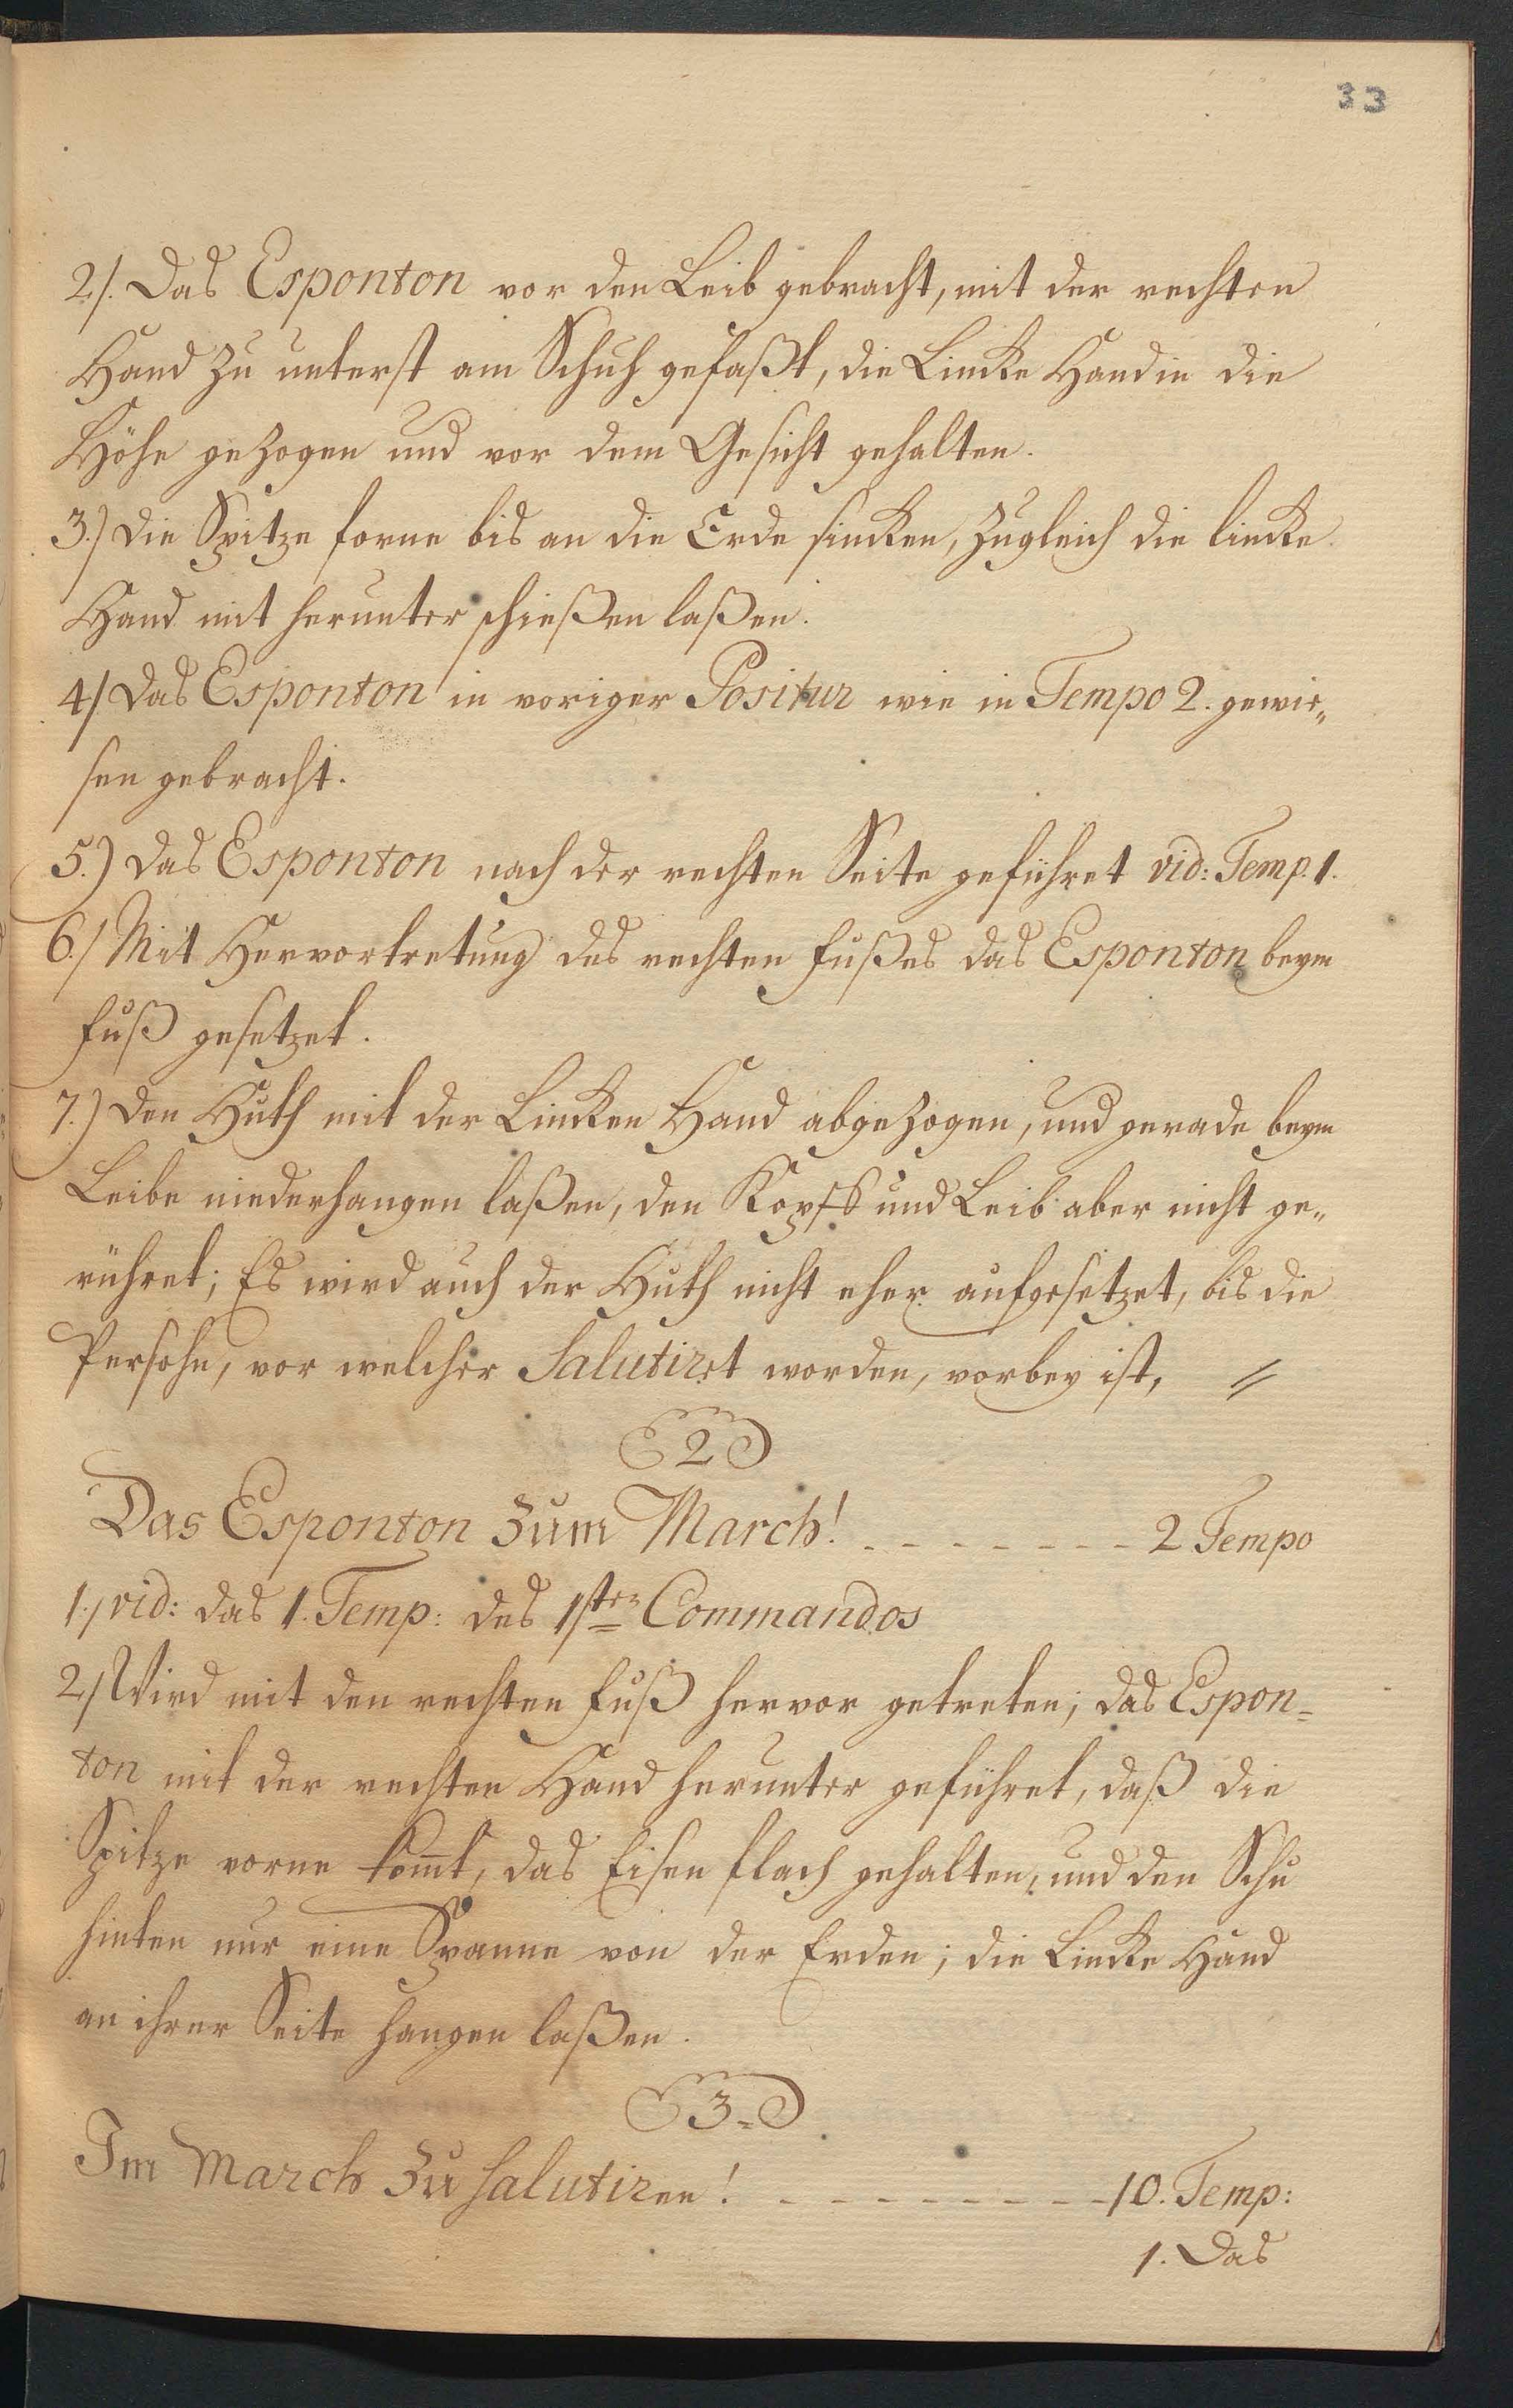 33
2./. Das Esponton vor den Leib gebracht, mit der rechten
Hand zu unterst am Schuh gefaßt, die Lincke Hand in die
Höhe gezogen und vor dem Gesicht gehalten.
3.) Die Spitze forne bis an die Erde sincken, zugleich die lincke
Hand mit herunter schießen laßen.
4/ Das Esponton in voriger Positur wie in Tempo 2. gewie„
sen gebracht.
5.) Das Esponton nach der rechten Seite geführet vid: Temp. 1.
6./ Mit Hervortretung des rechten Fußes das Esponton beym
Fuß gesetzet.
7.) Den Huth mit der Lincken Hand abgezogen, und gerade beym
Leibe niederhangen laßen, den Kopff und Leib aber nicht ge„
rühret; Es wird auch der Huth nicht eher aufgesetzet, bis die
Persohn, vor welcher Salutiret worden, vorbey ist, //
2
Das Esponton zum March! - - - - - - - - 2 Tempo
1./ vid: das 1. Temp: des 1sten Commandos
2./ Wird mit den rechten Fuß hervor getreten; das Espon=
ton mit der rechten Hand herunter geführet, daß die
Spitze vorne kom̄t, das Eisen flach gehalten, und den Schu
hinten nur eine Spanne von der Erden; die Lincke Hand
an ihrer Seite hangen laßen.
3.
Im March zu salutiren! - - - - - - - - - 10. Temp:
1. Das